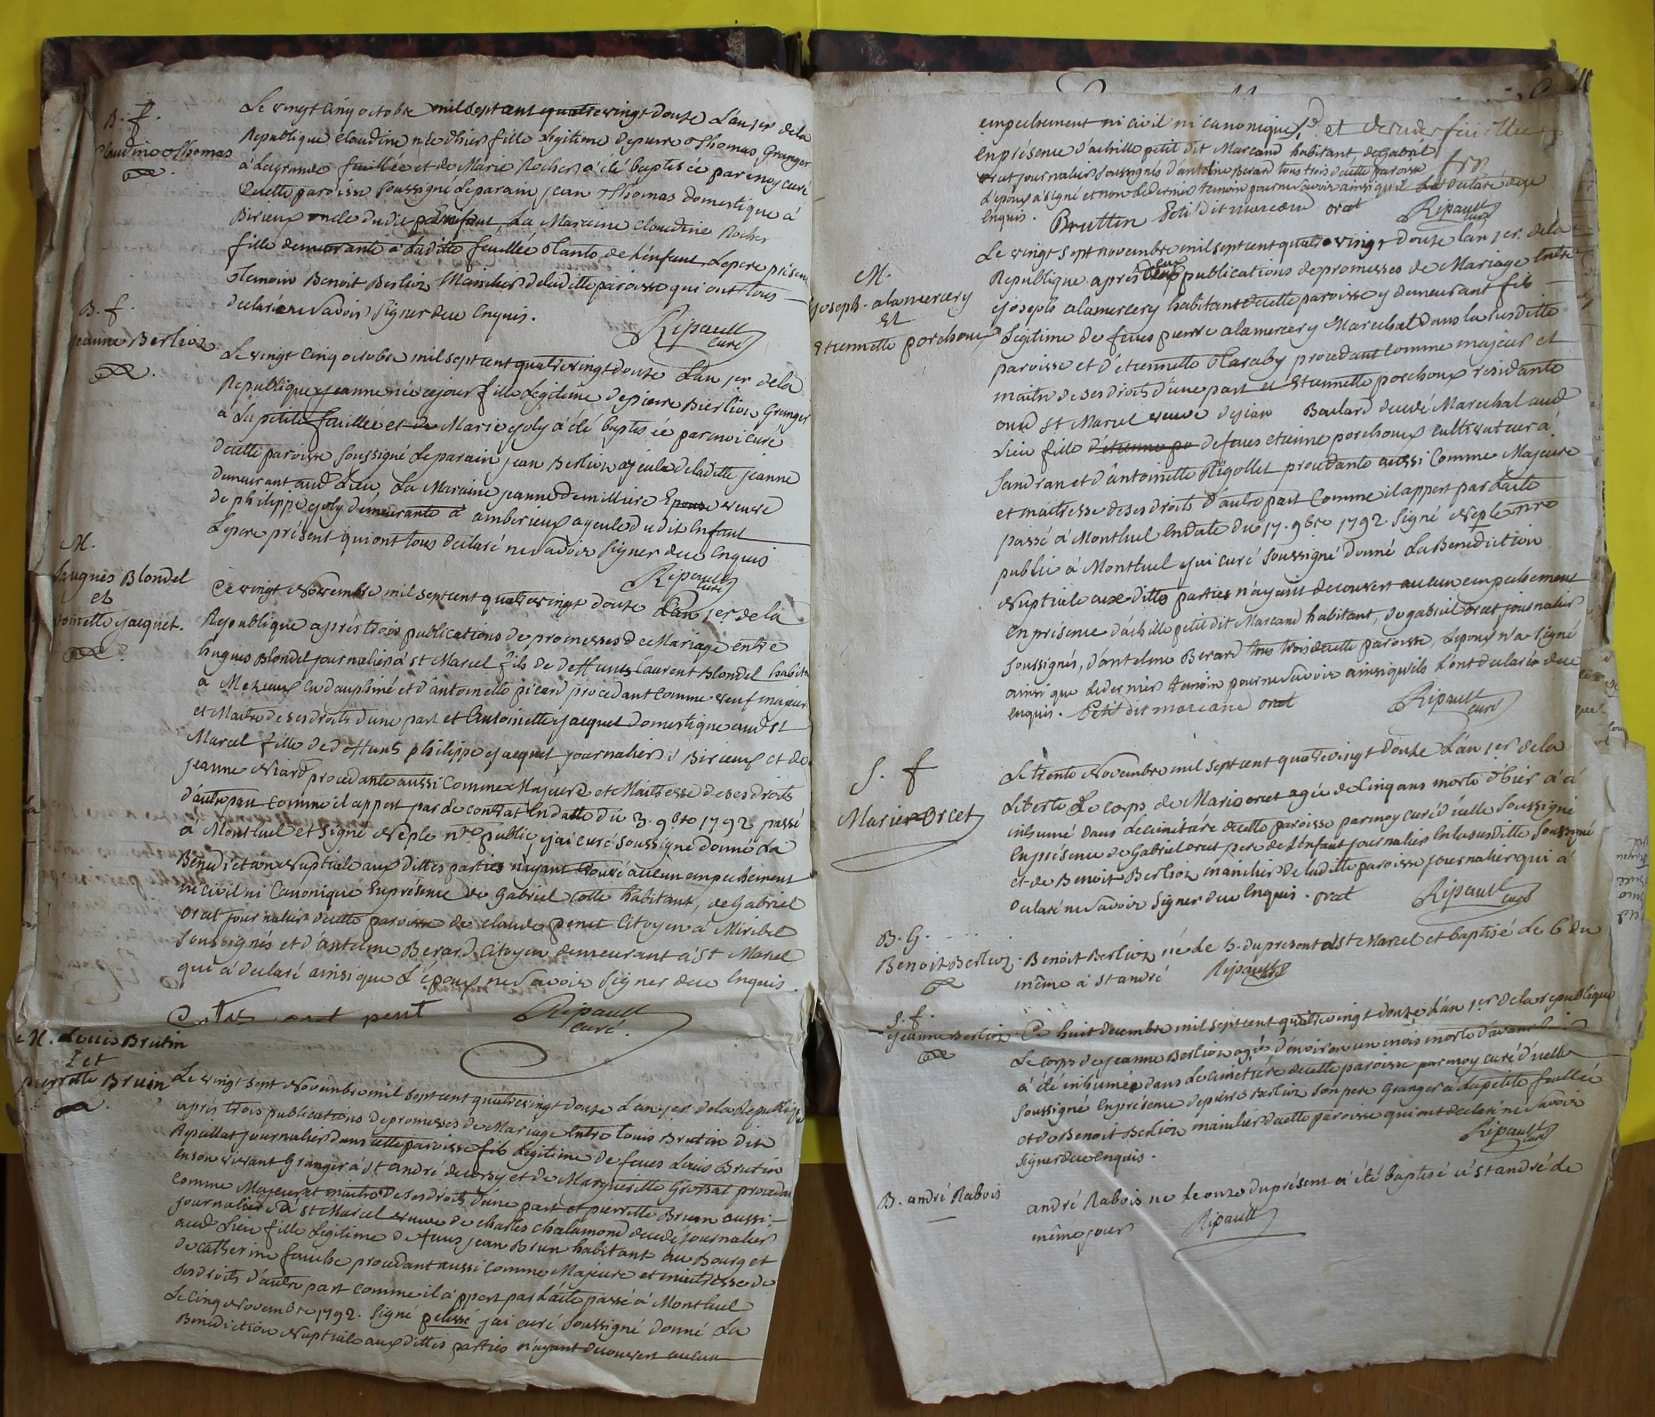 B. f.
Claudine Thomas
Le vingt Cinq octobre mil sept cent quatre vingt douze L'an 1er de la
Republique Claudine née d'hier fille Legitime de pierre Thomas Granger
à La grande feuillée et de Marie Rocher à été baptisée par moy curé
de cette paroisse soussigné Le parain jean Thomas domestique à
Birieux oncle du dit Enfant, La Maraine Claudine Rocher
fille demeurante à La ditte feuillée Tante de L'enfant Le pere présent
Temoin Benoit Berlioz Manilier de la ditte paroisse qui ont tous
declaré ne savoir signer de ce Enquis.
Ripault
curé
B. f.
jeanne Berlioz
Le vingt Cinq octobre mil sept cent quatre vingt douze L'an 1er de la
Republique jeanne née ce jour fille Legitime de pierre Berlioz Granger
à La petite feuillée et de Marie joly à été baptisée par moi curé
de cette paroisse soussigné Le parain jean Berlioz ayeul de la ditte jeanne
demeurant aud Lieu, La Maraine jeanne demilliere veuve
de philippe joly demeurante à amberieux ayeule du dit Enfant
Le pere présent qui ont tous declaré ne savoir signer de ce Enquis
Ripault
curé
M.
hugues Blondel
et
antoinette jacquet.
Ce vingt Novembre mil sept cent quatre vingt douze L'an 1er de la
Republique après trois publications de promesses de Mariage entre
hugues Blondel journalier à St Marcel fils de deffunts Laurent Blondel habitant
à Mezieux en dauphiné et d'antoinette picard procedant comme veuf majeur
et Maitre de ses droits d'une part et Antoinette jacquet domestique aud St
Marcel fille de deffunts philippe jacquet journalier à Birieux et de
jeanne Niard procedante aussi Comme Majeure et Maitresse de ses droits
d'autre part Comme il appert par Le contrat En datte du 3. 9bre 1792 passé
à Montluel et signé Neple nre public, j'ai curé soussigné donné La
Benediction Nuptiale aux dittes parties n'ayant trouvé aucun empechement
ni civil ni Canonique En présence de Gabriel Cotte habitant, de Gabriel
orcet journalier de cette paroisse de claude penet Citoyen à Miribel
soussignés et d'antelme Berard Citoyen demeurant à St Marcel
qui à declaré ainsi que L'epoux ne savoir signer de ce Enquis.
orcet penet
Ripault
curé.
M. Louis Brutin
et
pierrette Bruin
Le vingt sept Novembre mil sept cent quatre vingt douze L'an 1er de la Republique
après trois publications de promesses de Mariage Entre Louis Brutin dit
journalier dans cette paroisse fils Legitime de feus Louis Brutin
en son vivant Granger à St andré de corcy et de Marguerite Grossat procedant
comme Majeur et maitre de ses droits d'une part et pierrette Bruin aussi
journaliere à St Marcel veuve de charles chalamond decedé journalier
aud Lieu fille Legitime de feus jean Bruin habitant au Bourg et
de catherine fouche procedant aussi comme Majeure et maitresse de
ses droits d'autre part comme il appert par L'acte passé à Montluel
Le cinq Novembre 1792. Signé pelissé j'ai curé soussigné donné La
Benediction Nuptiale aux dittes parties n'ayant decouvert aucun
empechement ni civil ni canonique,
En présence d'achille petit dit Marcand habitant, de Gabriel
orcet journalier soussignés d'antelme Berard tous trois de cette paroisse
L'epoux à signé et non Le dernier temoin pour ne savoir ainsi qu'il La declaré de ce
Enquis.
Bruttin Petit dit marcand orcet
Ripault
curé
M.
joseph alamercery
Et
Etiennette porchoux
Le vingt sept novembre mil sept cent quatre vingt douze L'an 1er de la
Republique après deux publications de promesses de Mariage Entre
joseph alamercery habitant de cette paroisse y demeurant fils
Legitime de feus pierre alamercery Marechal dans la susditte
paroisse et d'etiennette Taraby procedant comme majeur et
maitre de ses droits d'une part et Etiennette porchoux residante
aud St Marcel veuve de jean Boulard decedé Marechal aud
Lieu fille de feus etienne porchoux cultivateur à
Sandran et d'antoinette Rigollet procedante aussi Comme Majeure
et maitresse de ses droits d'autre part Comme il appert par L'acte
passé à Montluel En date du 17. 9bre 1792 signé Neple nre
public à Montluel j'ai curé soussigné donné La Benediction
Nuptiale aux dittes parties n'ayant decouvert aucun empechement
En présence d'achille petit dit Marcand habitant, de gabriel orcet journalier
soussignés, d'antelme Berard tous trois de cette paroisse, L'epoux n'a signé
ainsi que Le dernier temoin pour ne savoir ainsi qu'ils L'ont declaré de ce
Enquis. Petit dit marcand orcet
Ripault
curé
S. f
Marie Orcet
Le trente Novembre mil sept cent quatre vingt douze L'an 1er de la
Liberté Le corps de Marie orcet agée de Cinq ans morte d'hier à été
inhumé dans Le cimetiére de cette paroisse par moy curé d'icelle soussigné
En présence de Gabriel orcet pere de L'Enfant journalier En la susditte soussigné
et de Benoit Berlioz manilier de la ditte paroisse journalier qui à
declaré ne savoir signer de ce Enquis. orcet
Ripault
curé
B. G.
Benoit Berlioz.
Benoit Berlioz né le 5. du present à St Marcel et baptisé Le 6 du
même à St andré
Ripault
S. f.
jeanne Berlioz
Ce huit decembre mil sept cent quatre vingt douze L'an 1er de la republique
Le corps de jeanne Berlioz agée d'environ un mois morte d'avant hier
à été inhumée dans Le cimetiére de cette paroisse par moy curé d'icelle
soussigné En présence de pierre Berlioz son pere Granger à La petite feuillée
et de Benoit Berlioz manilier de cette paroisse qui ont declaré ne savoir
signer de ce enquis.
Ripault
curé
B. andré Rabois
andré Rabois né Le onze du présent à été baptisé à St andré Le
même jour
Ripault